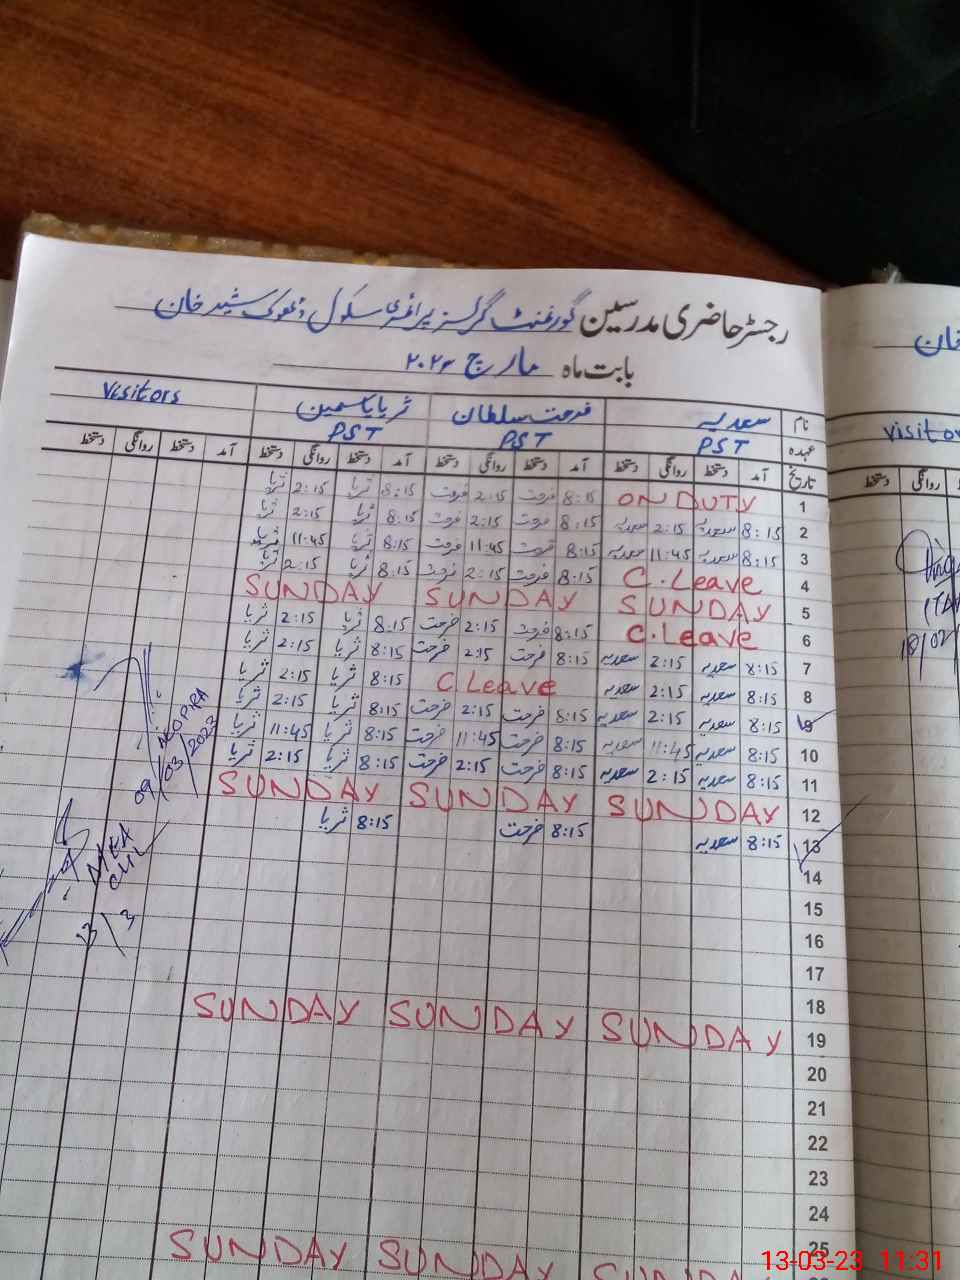 رجسٹر حاضری مدرسین گورنمنٹ گرلز پرائمری سکول ڈھوک شید خان
بابت ماہ مارچ ۲۰۲۳
نام سعدیہ فرحت سلطان ثریا یاسمین Visitors
عہدہ PST PST PST
تاریخ آمد دستخط روانگی دستخط آمد دستخط روانگی دستخط آمد دستخط روانگی دستخط آمد دستخط روانگی دستخط
1 ON DUTY 8:15 فرحت 2:15 فرحت 8:15 ثریا 2:15 ثریا
2 8:15 سعدیہ 2:15 سعدیہ 8:15 فرحت 2:15 فرحت 8:15 ثریا 2:15 ثریا
3 8:15 سعدیہ 11:45 سعدیہ 8:15 فرحت 11:45 فرحت 8:15 ثریا 11:45 ثریا
4 C.Leave 8:15 فرحت 2:15 فرحت 8:15 ثریا 2:15 ثریا
5 SUNDAY SUNDAY SUNDAY
6 C.Leave 8:15 فرحت 2:15 فرحت 8:15 ثریا 2:15 ثریا
7 8:15 سعدیہ 2:15 سعدیہ 8:15 فرحت 2:15 فرحت 8:15 ثریا 2:15 ثریا
8 8:15 سعدیہ 2:15 سعدیہ C Leave 8:15 ثریا 2:15 ثریا
9 8:15 سعدیہ 2:15 سعدیہ 8:15 فرحت 2:15 فرحت 8:15 ثریا 2:15 ثریا
10 8:15 سعدیہ 11:45 سعدیہ 8:15 فرحت 11:45 فرحت 8:15 ثریا 11:45 ثریا
11 8:15 سعدیہ 2:15 سعدیہ 8:15 فرحت 2:15 فرحت 8:15 ثریا 2:15 ثریا
12 SUNDAY SUNDAY SUNDAY
13 8:15 سعدیہ 8:15 فرحت 8:15 ثریا
14
15
16
17
18
19 SUNDAY SUNDAY SUNDAY
20
21
22
23
24
25
SUNDAY SUNDAY SUNDA
09/03/2023
13/3
خان
visito
روانگی دستخط
18/02/
13-03-23 11:31